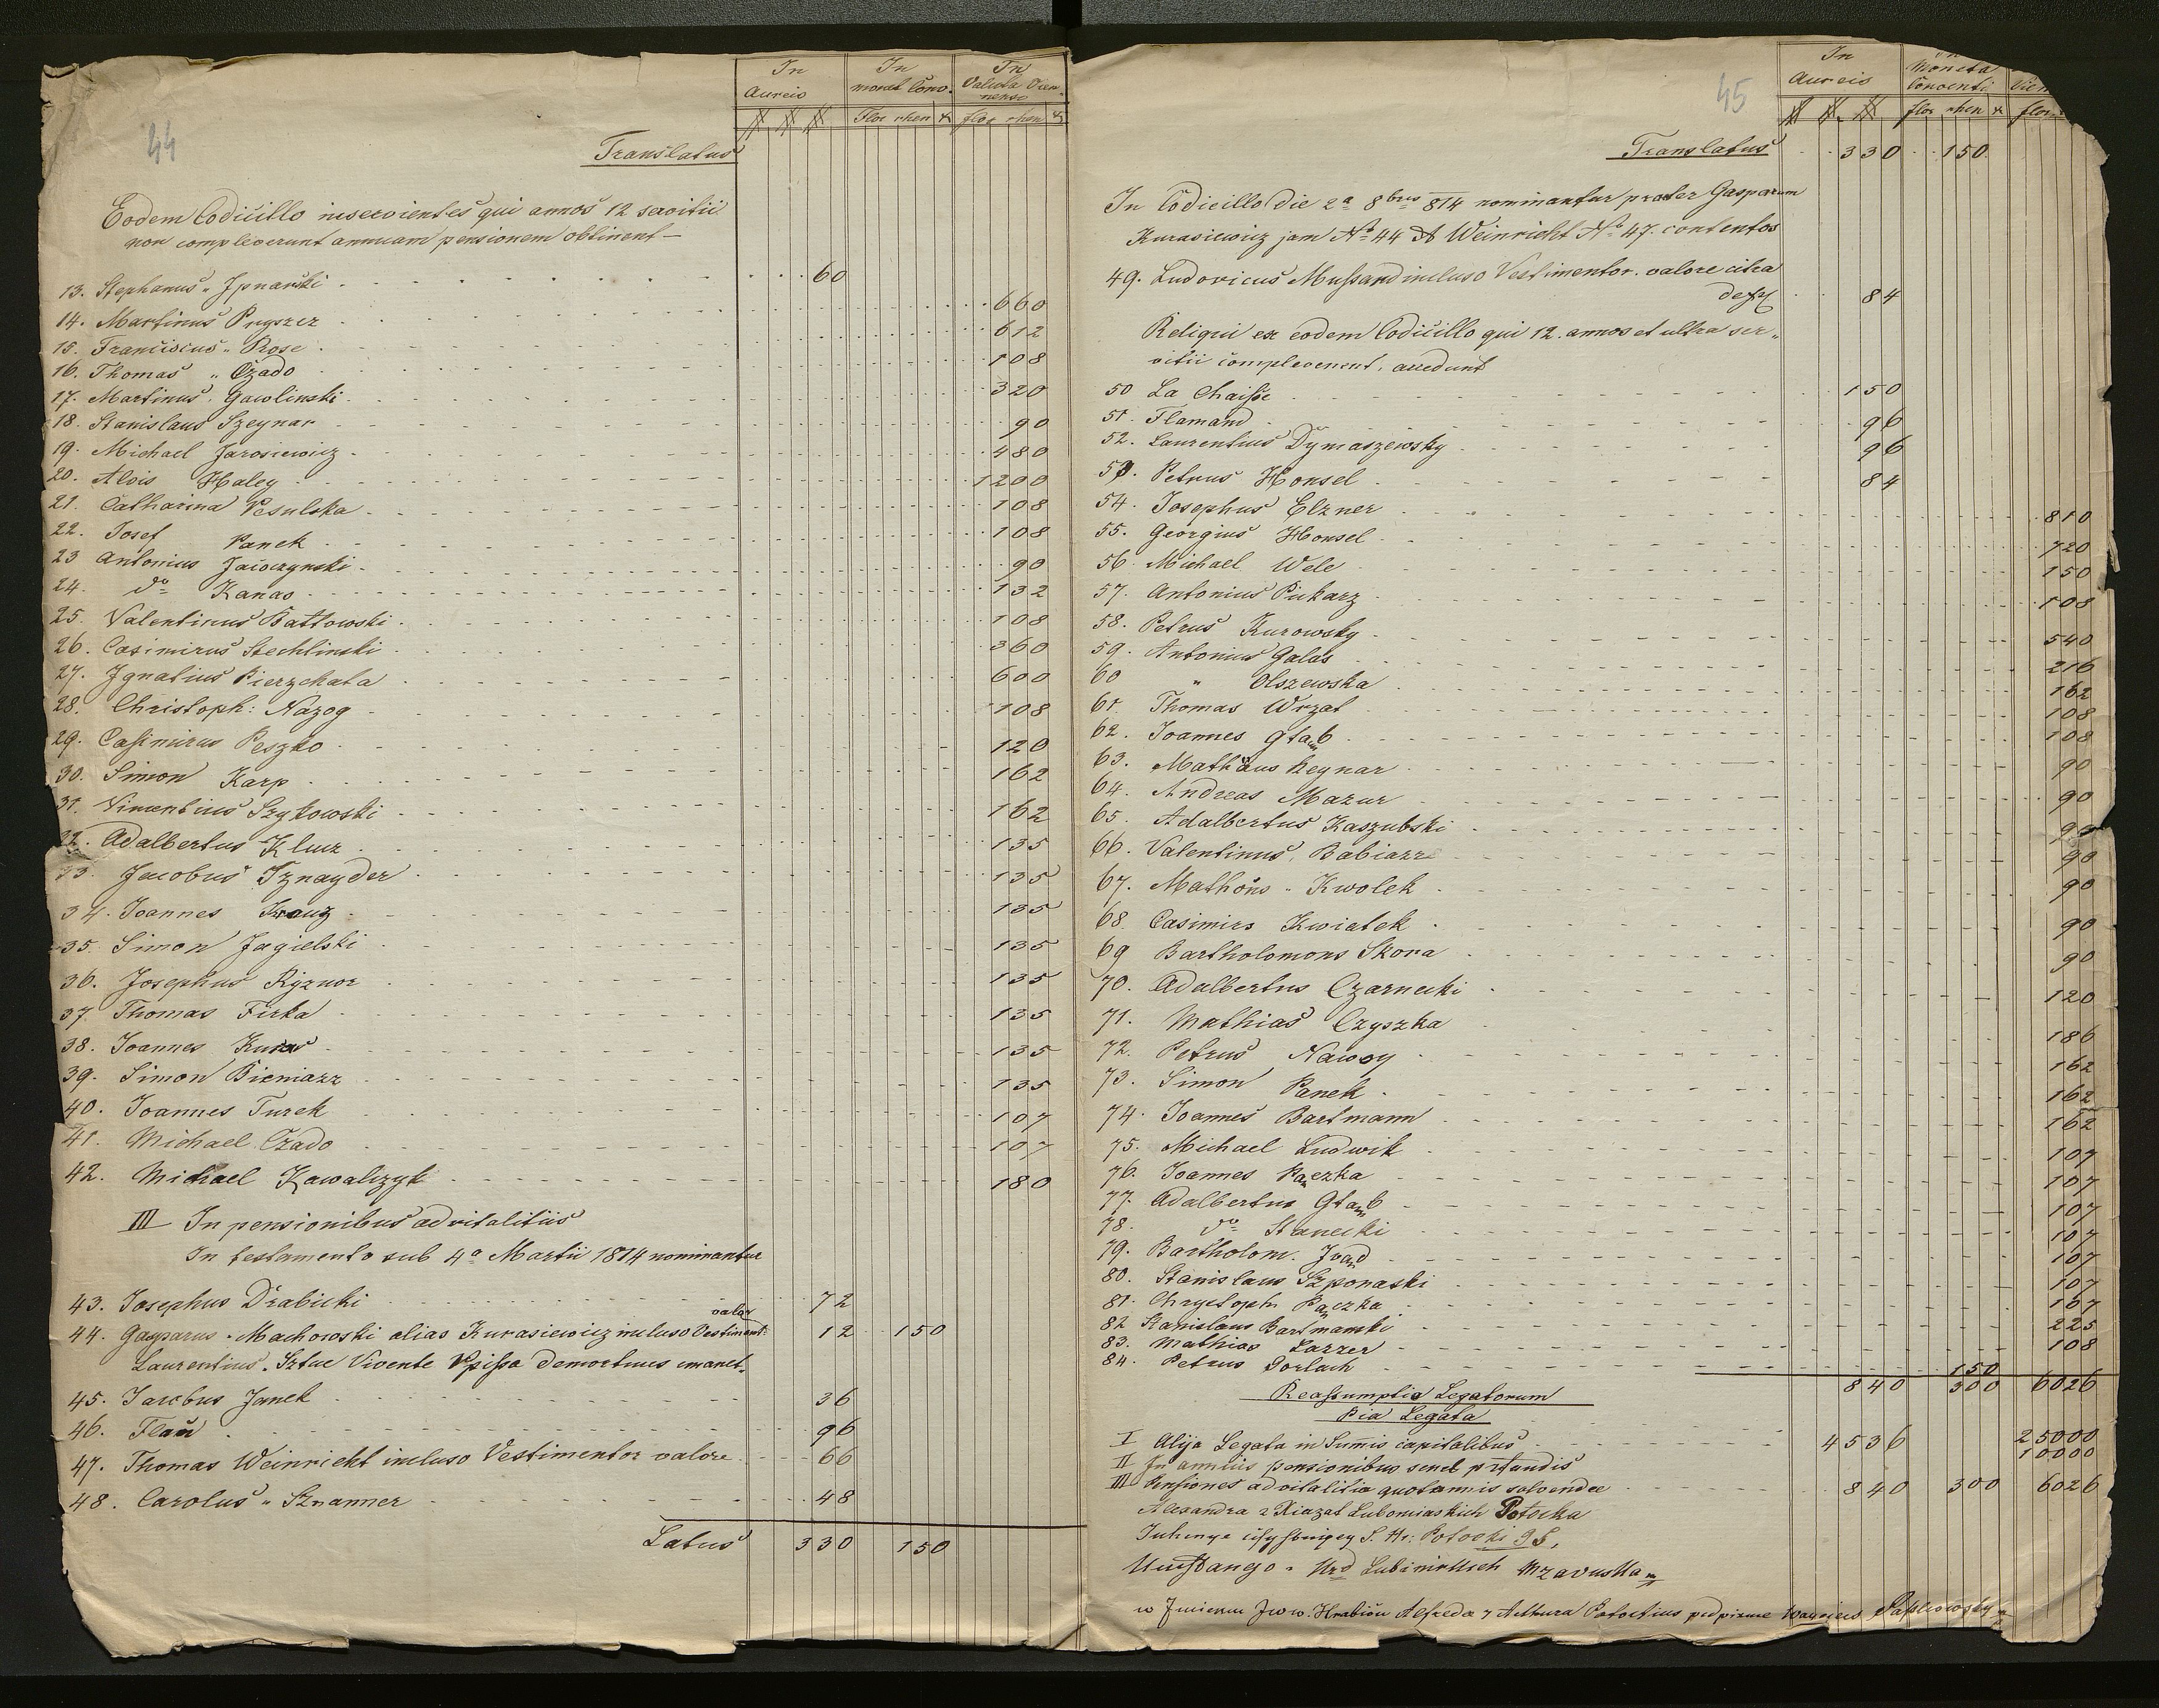 44
In Aureis
In monet Conv.
In Valuta Viennensi
Flor rhen x
flor rhen x
Translatus
Eodem Codicillo inservientes qui annos 12 servitii
non compleverunt annuam pensionem obtinent —
13. Stephanus „ Ipnarski 60
14. Martinus Pryszcz 660
15. Franciscus „ Rose 612
16. Thomas „ Czado 108
17. Martinus Gawlinski 320
18. Stanislaus Szeynar 90
19. Michael Jarosiewicz 480
20. Alois Haley 1200
21. Catharina Vesulska 108
22. Josef Panek 108
23 Antonius Jaiwczynski 90
24. do Kanas 132
25. Valentinus Battowski 108
26. Casimirus Stechlinski 360
27. Ignatius Pierzchata 600
28. Christoph: Nazog 108
29. Casimirus Peszko 120
30. Simon Karp 162
31. Vincentius Szytkowski 162
32. Adalbertus Klucz 135
33. Jacobus Sznayder 135
34. Joannes Krauz 135
35. Simon Jagielski 135
36. Josephus Ryznor 135
37. Thomas Firka 135
38. Joannes Kuras 135
39. Simon Bieniazz 135
40. Joannes Turek 107
41. Michael Czado 107
42. Michael Kawalczyk 180
III In pensionibus advitalitiis
In testamento sub 4a Martii 1814 nominantur
43. Josephus Drabicki 72
44. Gasparus Machowski alias Kurasiewicz incluso Vestiment: valor 12 150
Laurentius Sztuc Vivente demortuus
45. Jacobus Janek 36
46. Flaŭ 96
47. Thomas Weinricht incluso Vestimentor valore 66
48. Carolus „ Sznanner 48
Latus 330 150
45
In Aureis
Moneta Conventi
flor rhen x
flor
Translatus 330 150
In Codicillo die 2a 8bris 814 nominantur praeter Gasparum
Kurasiewicz jam No 44 & Weinricht No 47. contentos
49. Ludovicus Mussand incluso Vestimentor. valore citra
84
Reliqui ex eodem Codicillo qui 12. annos et ultra ser„
vitii compleverunt, accedunt
50 La Chaisse 150
51 Flamand 96
52. Laurentius Dymaszewsky 96
53. Petrus Honsel 84
54. Josephus Elzner 810
55. Georgius Honsel 720
56. Michael Wele 150
57. Antonius Piekarz 108
58. Petrus Kurowsky 540
59. Antonius Galas 216
60 „ Olszewska 162
61 Thomas Wrzat 108
62. Joannes Głąb 108
63. Mathäus Reynar 90
64. Andreas Mazur 90
65. Adalbertus Kaszubski 90
66. Valentinus Babiazz 90
67. Mathöus „ Kwolek 90
68. Casimirs Kwiatek 90
69 Bartholomons Skora 90
70. Adalbertus Czarnecki 120
71. Mathias Czyszka 186
72. Petrus Nawoy 162
73. Simon Panek 162
74. Joannes Bartmann 162
75. Michael Ludwik 107
76. Joannes Pączka 107
77. Adalbertus Głąb 107
78. do Stanecki 107
79. Bartholom. Iwąd 107
80. Stanislaus Szponaski 107
81. Chrystoph Pączka 107
82 Stanislaus Bartmanski 225
83. Mathias Lazzer 108
84. Petrus Dorlach 150
840 300 6026
Reassumptio Legatorum
Pia Legata 25000
I Alija Legata in Summis capitalibus 4536 10000
II In annuis pensionibus semel prstandis
III Pensiones advitalitia quotannis solvendae 840 300 6026
Alexandra z Xiazat Lubomirskich Potocka
Potocki
w Imieniu Jww. Hrabiów Alfreda y Arthura